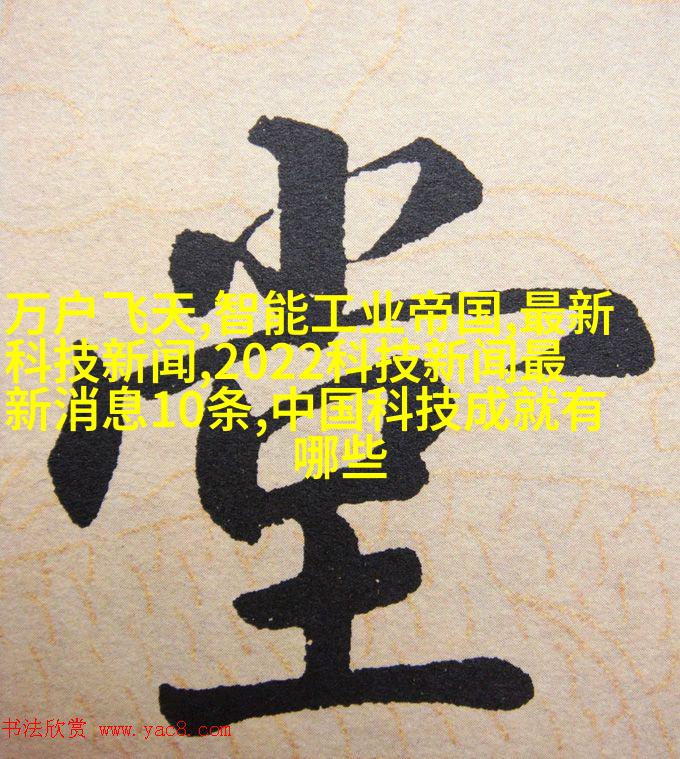 堂
万户飞天,智能工业帝国,最新
科技新闻,2022科技新闻最
新消息10条,中国科技成就有
哪些
书法欣赏 www.yac8.com